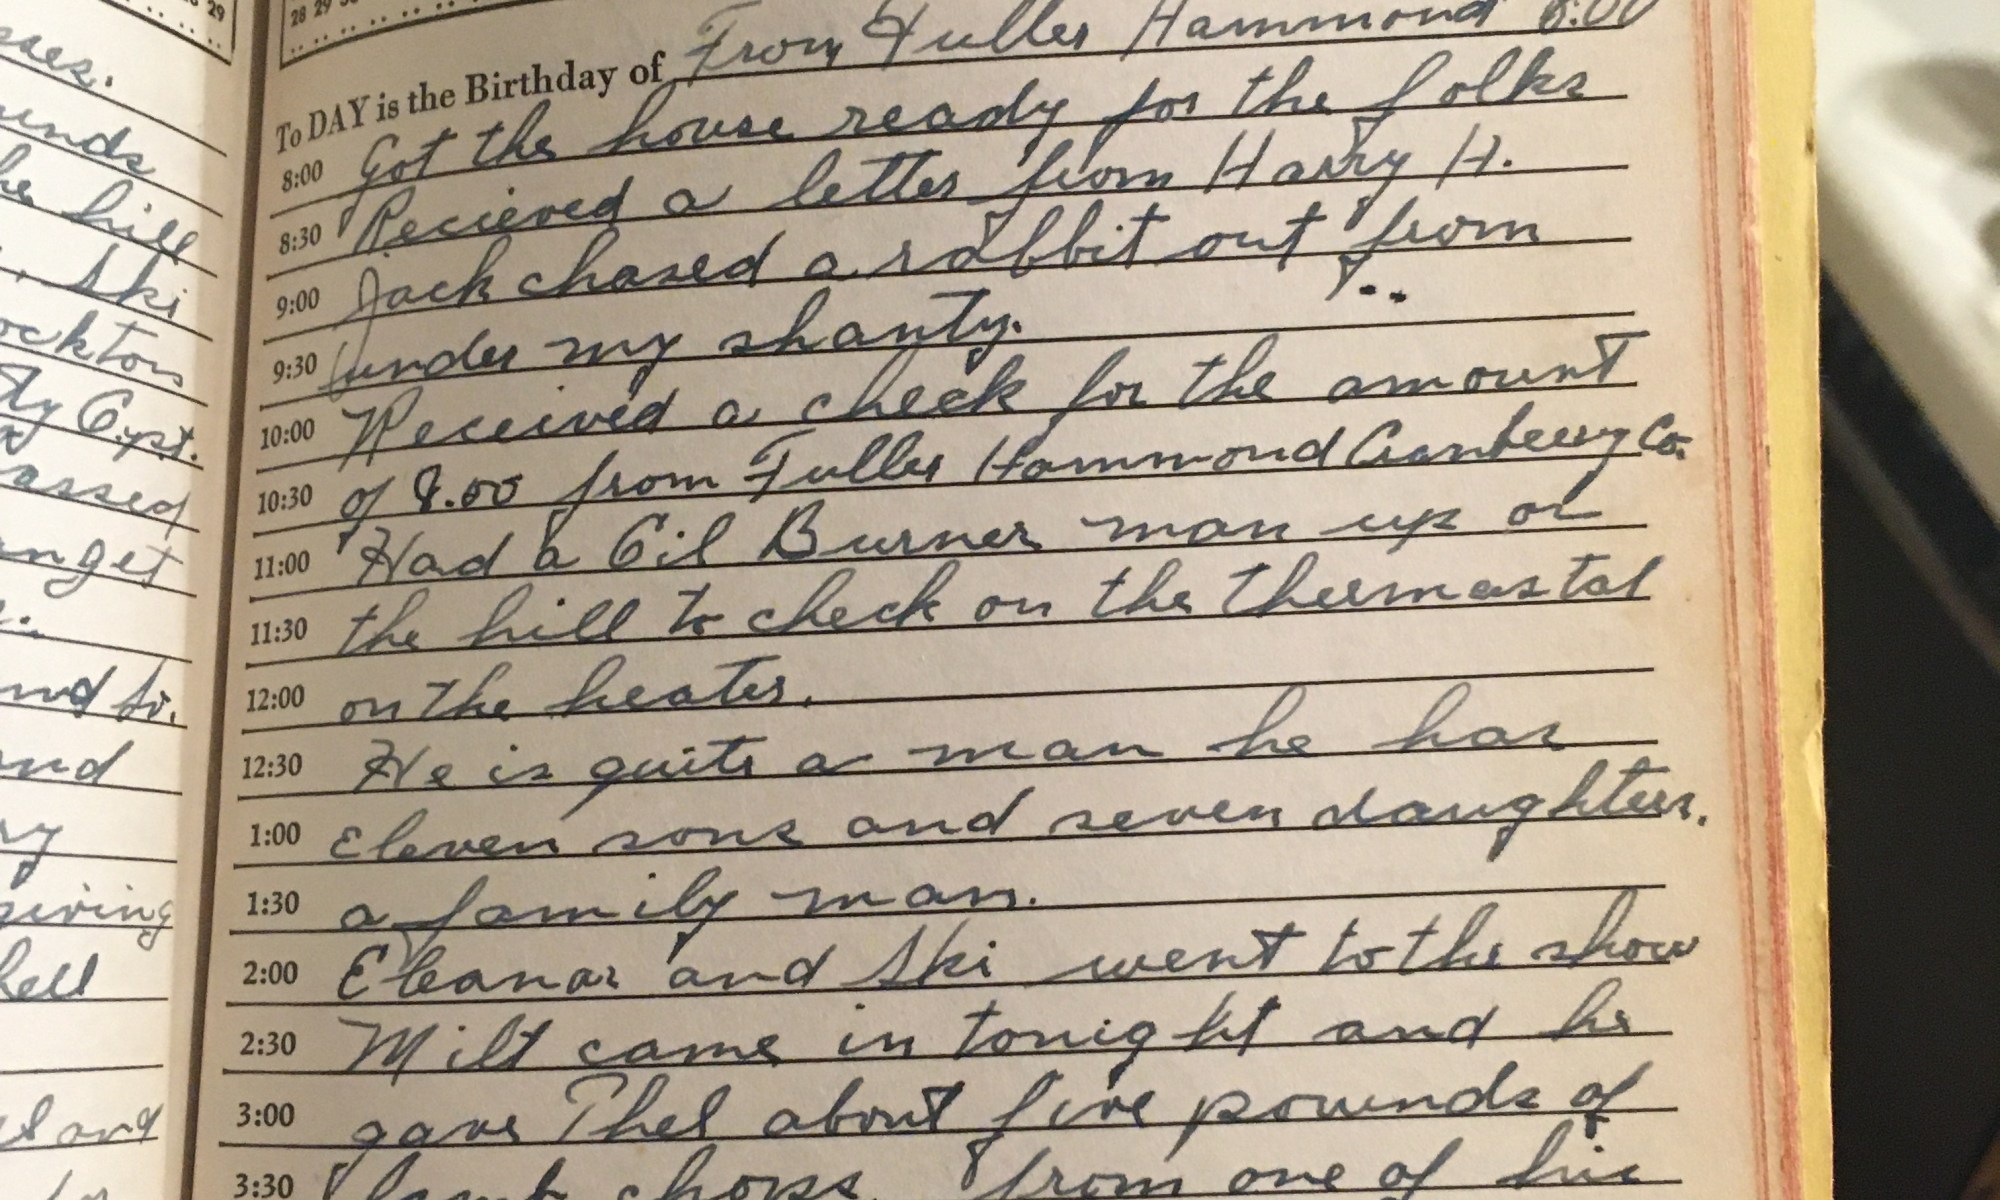 28 29
29
To DAY is the Birthday of From Fuller Hammond 8:00
8:00 Got the house ready for the folks
8:30 Recieved a letter from Harry H.
9:00 Jack chased a rabbit out from
9:30 under my shanty.
10:00 Received a check for the amount
10:30 of 8.00 from Fuller Hammond Cranberry Co.
11:00 Had a Oil Burner man up on
11:30 the hill to check on the thermastat
12:00 on the heater.
12:30 He is quite a man he has
1:00 Eleven sons and seven daughters.
1:30 a family man.
2:00 Eleanar and Ski went to the show
2:30 Milt came in tonight and he
3:00 gave Thel about five pounds of
3:30 lamb chops from one of his
hill
Ski
and